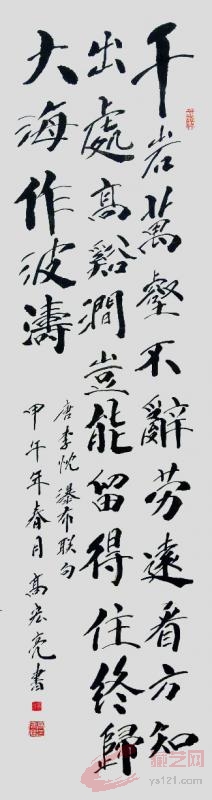 千岩萬壑不辭勞遠看方知
出處高谿澗豈能留得住終歸
大海作波濤
唐李忱瀑布联句
甲午年春月高宏亮書
藏艺网
ys121.com